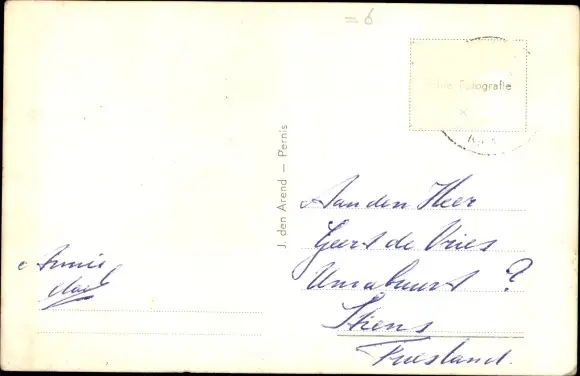 = 6
Fotografie
J. den Arend — Pernis
Aan den Heer
Geert de Vries
Uniabuurt ?
Stiens
Friesland.
Annie